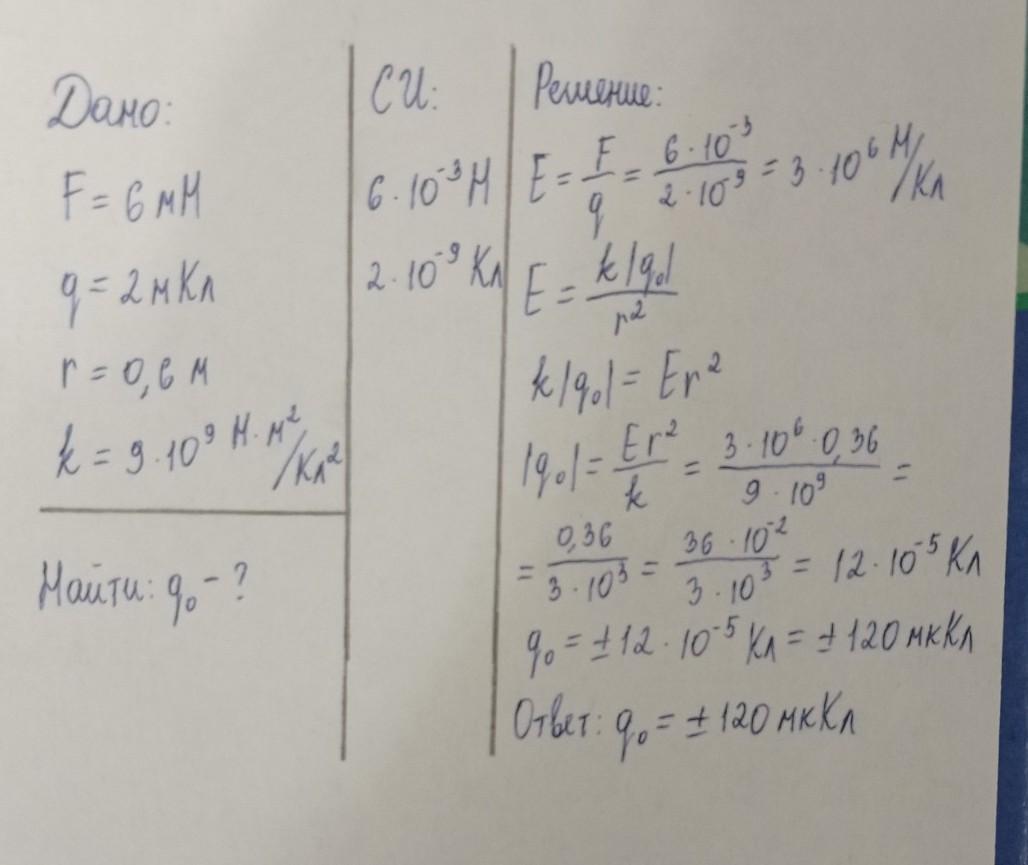 Дано:
F = 6 мН
q = 2 мКл
r = 0,6 м
k = 9·10⁹ Н·м²/Кл²
Найти: q₀ - ?
СИ:
6·10⁻³ Н
2·10⁻⁹ Кл
Решение:
E = F/q = 6·10⁻³/2·10⁻⁹ = 3·10⁶ Н/Кл
E = k|q₀|/r²
k|q₀| = Er²
|q₀| = Er²/k = 3·10⁶·0,36/9·10⁹ =
= 0,36/3·10³ = 36·10⁻²/3·10³ = 12·10⁻⁵ Кл
q₀ = ±12·10⁻⁵ Кл = ±120 мкКл
Ответ: q₀ = ±120 мкКл